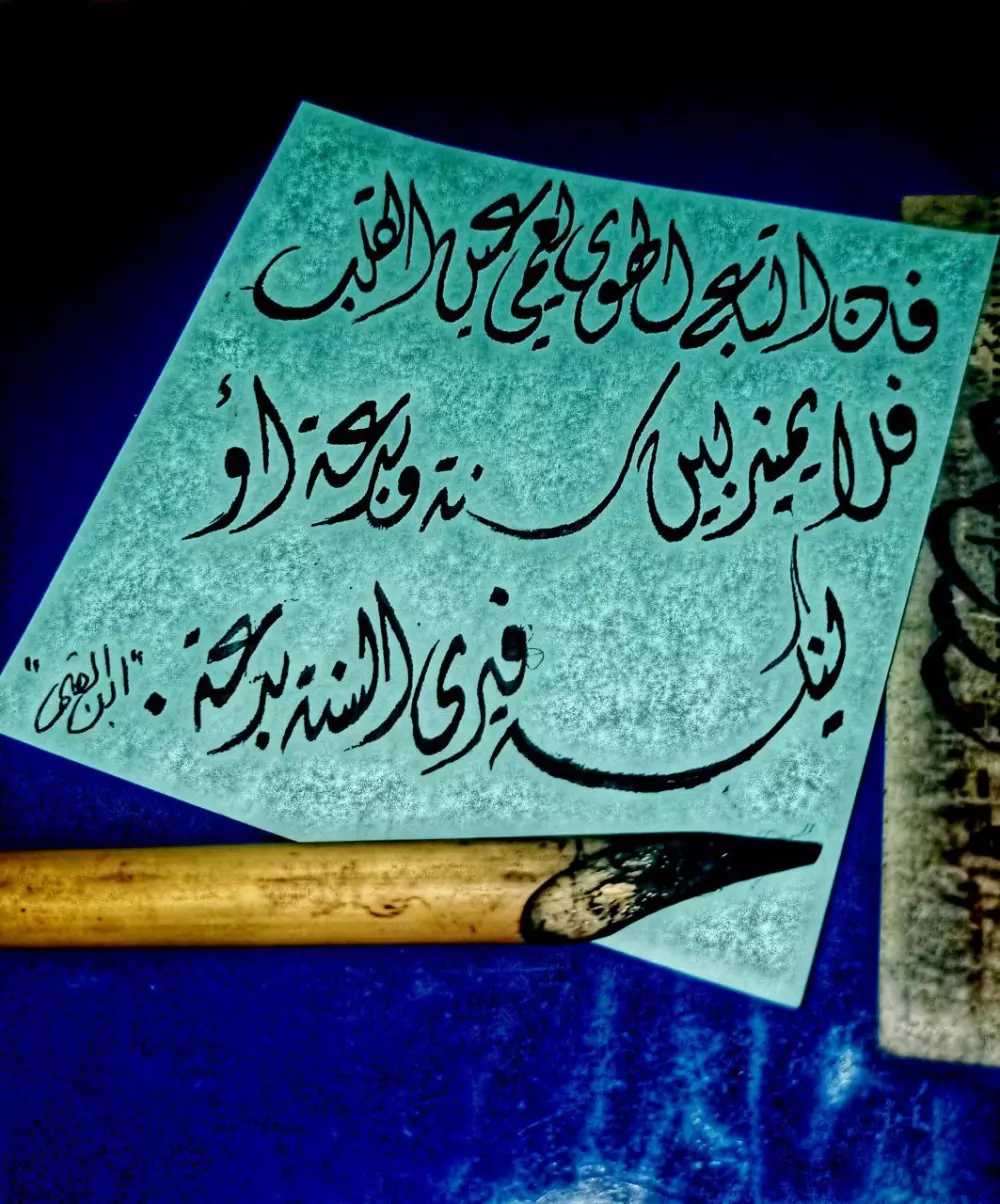 فإن اتباع الهوى يعمي عين القلب
فلا يميز بين سنة وبدعة أو
ينكسه فيرى السنة بدعة .
"ابن القيم"